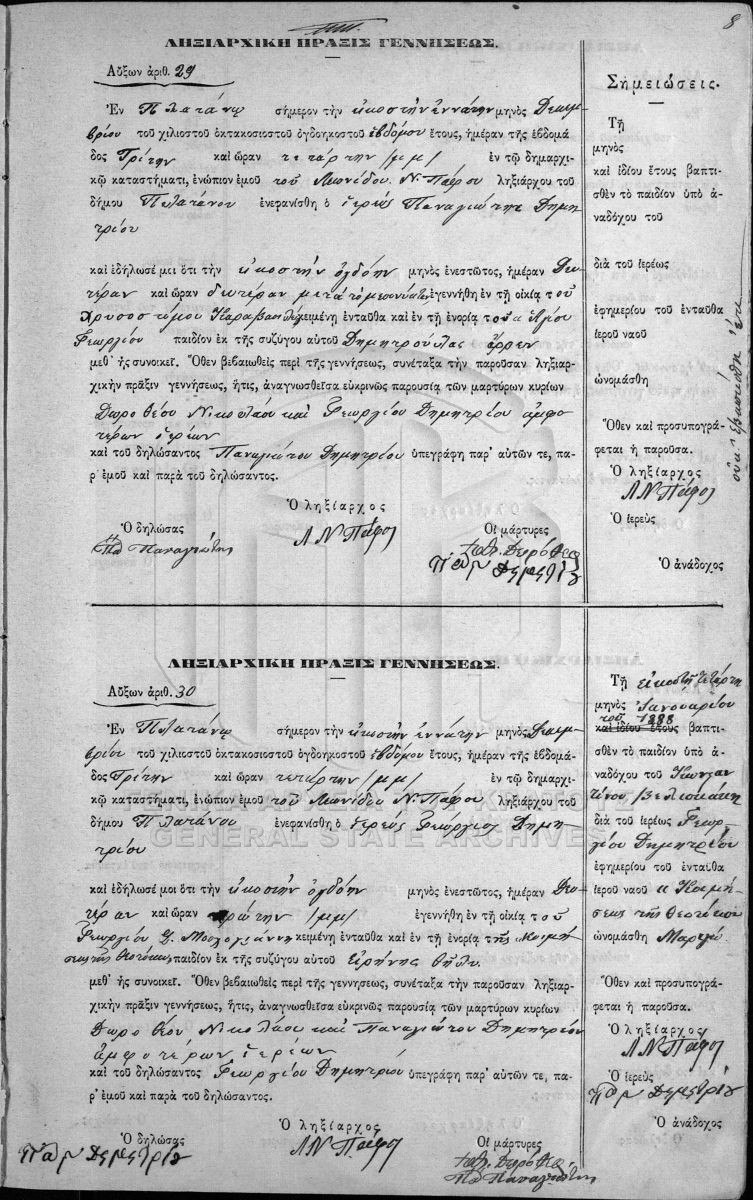 8
ΛΗΞΙΑΡΧΙΚΗ ΠΡΑΞΙΣ ΓΕΝΝΗΣΕΩΣ.
Αὔξων ἀριθ. 29
Ἐν Πλατάνῳ σήμερον τὴν εἰκοστὴν ἐννάτην μηνὸς Δεκεμ
βρίου τοῦ χιλιοστοῦ ὀκτακοσιοστοῦ ὀγδοηκοστοῦ ἑβδόμου ἔτους, ἡμέραν τῆς ἑβδομά
δος Τρίτην καὶ ὥραν τετάρτην /μμ/ ἐν τῷ δημαρχι-
κῷ καταστήματι, ἐνώπιον ἐμοῦ τοῦ Λεωνίδου Ν. Πάφου ληξιάρχου τοῦ
δήμου Πλατάνου ἐνεφανίσθη ὁ ἱερεὺς Παναγιώτης Δημη
τρίου
καὶ ἐδήλωσέ μοι ὅτι τὴν εἰκοστὴν ὀγδόην μηνὸς ἐνεστῶτος, ἡμέραν Δευ
τέραν καὶ ὥραν δευτέραν μετὰ τὸ μεσονύκτιον ἐγεννήθη ἐν τῇ οἰκίᾳ τοῦ
Χρυσοστόμου κειμένῃ ἐνταῦθα καὶ ἐν τῇ ἐνορίᾳ τοῦ Ἁγίου
Γεωργίου παιδίον ἐκ τῆς συζύγου αὐτοῦ Δημητρούλας ἄρρεν
μεθ' ἧς συνοικεῖ. Ὅθεν βεβαιωθεὶς περὶ τῆς γεννήσεως, συνέταξα τὴν παροῦσαν ληξιαρ-
χικὴν πρᾶξιν γεννήσεως, ἥτις, ἀναγνωσθεῖσα εὐκρινῶς παρουσίᾳ τῶν μαρτύρων κυρίων
Δωροθέου Νικολάου καὶ Γεωργίου Δημητρίου ἀμφο
τέρων ἱερέων
καὶ τοῦ δηλώσαντος Παναγιώτου Δημητρίου ὑπεγράφη παρ' αὐτῶν τε, πα-
ρ' ἐμοῦ καὶ παρὰ τοῦ δηλώσαντος.
Ὁ ληξίαρχος
Λ Ν Πάφος
Ὁ δηλώσας
Παναγιώτης
Οἱ μάρτυρες
Σημειώσεις.
Τῇ
μηνὸς
καὶ ἰδίου ἔτους βαπτι-
σθὲν τὸ παιδίον ὑπὸ ἀ-
ναδόχου τοῦ
διὰ τοῦ ἱερέως
ἐφημερίου τοῦ ἐνταῦθα
ἱεροῦ ναοῦ
ὠνομάσθη
Ὅθεν καὶ προσυπογρά-
φεται ἡ παροῦσα.
Ὁ ληξίαρχος
Λ Ν Πάφος
Ὁ ἱερεὺς
Ὁ ἀνάδοχος
ΛΗΞΙΑΡΧΙΚΗ ΠΡΑΞΙΣ ΓΕΝΝΗΣΕΩΣ.
Αὔξων ἀριθ. 30
Ἐν Πλατάνῳ σήμερον τὴν εἰκοστὴν ἐννάτην μηνὸς Δεκεμ
βρίου τοῦ χιλιοστοῦ ὀκτακοσιοστοῦ ὀγδοηκοστοῦ ἑβδόμου ἔτους, ἡμέραν τῆς ἑβδομά-
δος Τρίτην καὶ ὥραν τετάρτην /μμ/ ἐν τῷ δημαρχι-
κῷ καταστήματι, ἐνώπιον ἐμοῦ τοῦ Λεωνίδου Ν. Πάφου ληξιάρχου τοῦ
δήμου Πλατάνου ἐνεφανίσθη ὁ ἱερεὺς Γεώργιος Δημη
τρίου
καὶ ἐδήλωσέ μοι ὅτι τὴν εἰκοστὴν ὀγδόην μηνὸς ἐνεστῶτος, ἡμέραν Δευ
τέραν καὶ ὥραν πρώτην /μμ/ ἐγεννήθη ἐν τῇ οἰκίᾳ τοῦ
Γεωργίου κειμένῃ ἐνταῦθα καὶ ἐν τῇ ἐνορίᾳ τῆς Κοιμή
σεως τῆς Θεοτόκου παιδίον ἐκ τῆς συζύγου αὐτοῦ Εἰρήνης θῆλυ
μεθ' ἧς συνοικεῖ. Ὅθεν βεβαιωθεὶς περὶ τῆς γεννήσεως, συνέταξα τὴν παροῦσαν ληξιαρ-
χικὴν πρᾶξιν γεννήσεως, ἥτις, ἀναγνωσθεῖσα εὐκρινῶς παρουσίᾳ τῶν μαρτύρων κυρίων
Δωροθέου Νικολάου καὶ Παναγιώτου Δημητρίου
ἀμφοτέρων ἱερέων
καὶ τοῦ δηλώσαντος Γεωργίου Δημητρίου ὑπεγράφη παρ' αὐτῶν τε, πα-
ρ' ἐμοῦ καὶ παρὰ τοῦ δηλώσαντος.
Ὁ ληξίαρχος
Λ Ν Πάφος
Ὁ δηλώσας
Οἱ μάρτυρες
Παναγιώτης
Τῇ εἰκοστῇ τετάρτῃ
μηνὸς Ἰανουαρίου
τοῦ 1888
καὶ ἰδίου ἔτους βαπτι-
σθὲν τὸ παιδίον ὑπὸ ἀ-
ναδόχου τοῦ Κωνσταν
τίνου
διὰ τοῦ ἱερέως Γεωρ
γίου Δημητρίου
ἐφημερίου τοῦ ἐνταῦθα
ἱεροῦ ναοῦ Κοιμή
σεως τῆς Θεοτόκου
ὠνομάσθη
Ὅθεν καὶ προσυπογρά-
φεται ἡ παροῦσα.
Ὁ ληξίαρχος
Λ Ν Πάφος
Ὁ ἱερεὺς
Ὁ ἀνάδοχος
GENERAL STATE ARCHIVES